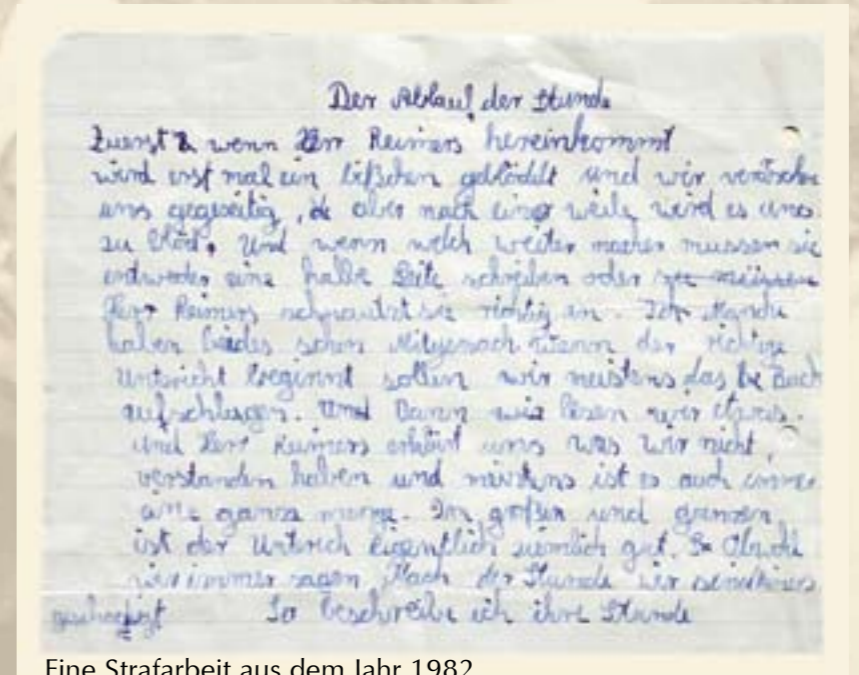 Der Ablauf der Stunde
Zuerst wenn Herr Reimers hereinkommt
wird erst mal ein bißchen geblödelt und wir
uns gegseitig, aber nach einer weile wird es uns
zu blöd. Und wenn welch weiter machen mussen sie
entweder eine halbe Seite schreiben oder sie müssen
Herr Reimers schnautzt sie richtig an.
haben beides schon der richtige
Unterricht beginnt sollen wir meistens das Buch
aufschlagen. Und Dann lesen wir etwas.
und Herr Reimers erklärt uns was wir nicht
verstanden haben und meistens ist es auch immer
eine ganze menge. Im großen und ganzen
ist der Unterich eigentlich ziemlich gut. Obwohl
wir immer sagen Nach der Stunde wir sind
geschaft So beschreibe ich ihre Stunde
Eine Strafarbeit aus dem Jahr 1982